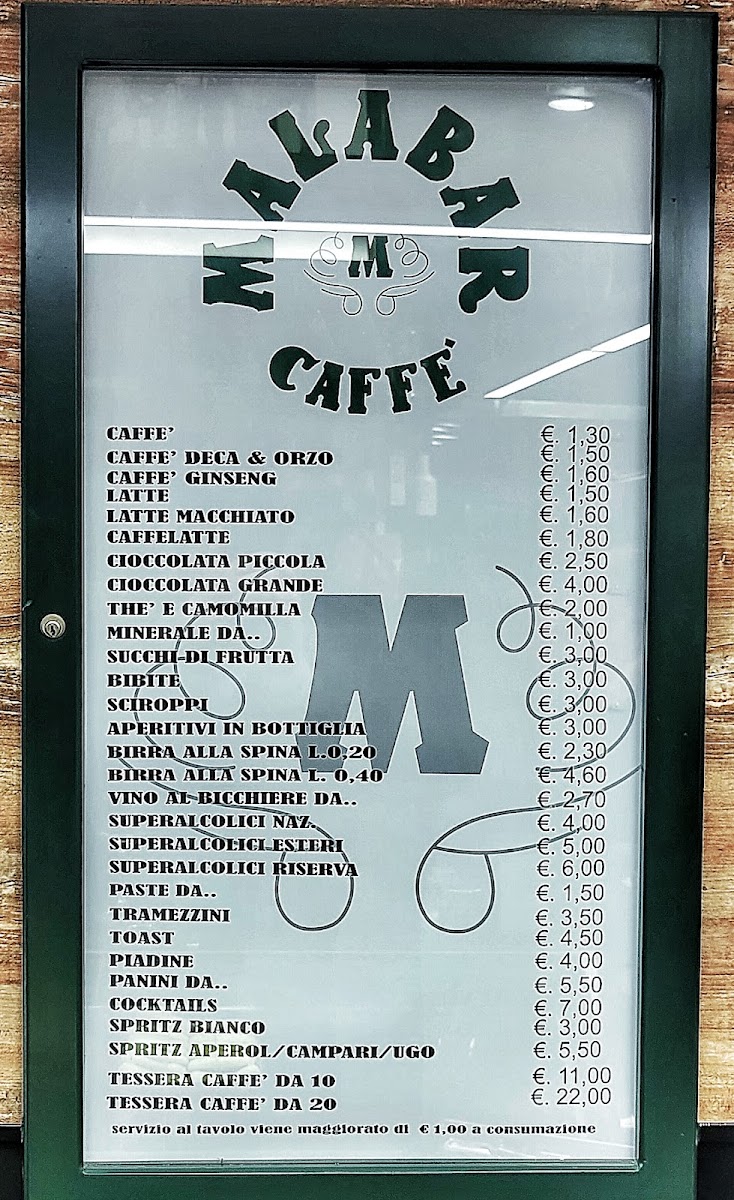 MALABAR
M
CAFFÈ
CAFFE' €. 1,30
CAFFE' DECA & ORZO €. 1,50
CAFFE' GINSENG €. 1,60
LATTE €. 1,50
LATTE MACCHIATO €. 1,60
CAFFELATTE €. 1,80
CIOCCOLATA PICCOLA €. 2,50
CIOCCOLATA GRANDE €. 4,00
THE' E CAMOMILLA €. 2,00
MINERALE DA.. €. 1,00
SUCCHI DI FRUTTA €. 3,00
BIBITE €. 3,00
SCIROPPI €. 3,00
APERITIVI IN BOTTIGLIA €. 3,00
BIRRA ALLA SPINA L.0,20 €. 2,30
BIRRA ALLA SPINA L. 0,40 €. 4,60
VINO AL BICCHIERE DA.. €. 2,70
SUPERALCOLICI NAZ. €. 4,00
SUPERALCOLICI ESTERI €. 5,00
SUPERALCOLICI RISERVA €. 6,00
PASTE DA.. €. 1,50
TRAMEZZINI €. 3,50
TOAST €. 4,50
PIADINE €. 4,00
PANINI DA.. €. 5,50
COCKTAILS €. 7,00
SPRITZ BIANCO €. 3,00
SPRITZ APEROL/CAMPARI/UGO €. 5,50
TESSERA CAFFE' DA 10 €. 11,00
TESSERA CAFFE' DA 20 €. 22,00
servizio al tavolo viene maggiorato di € 1,00 a consumazione
M